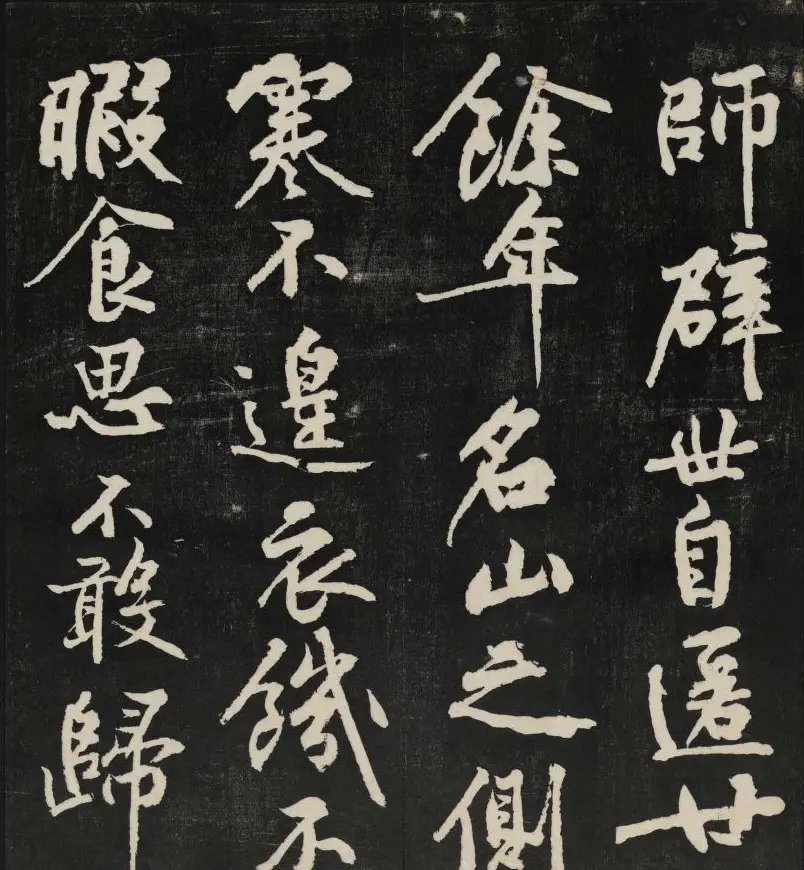 師辟世自匿廿
餘年名山之側
寒不遑衣饑不
暇食思不敢歸